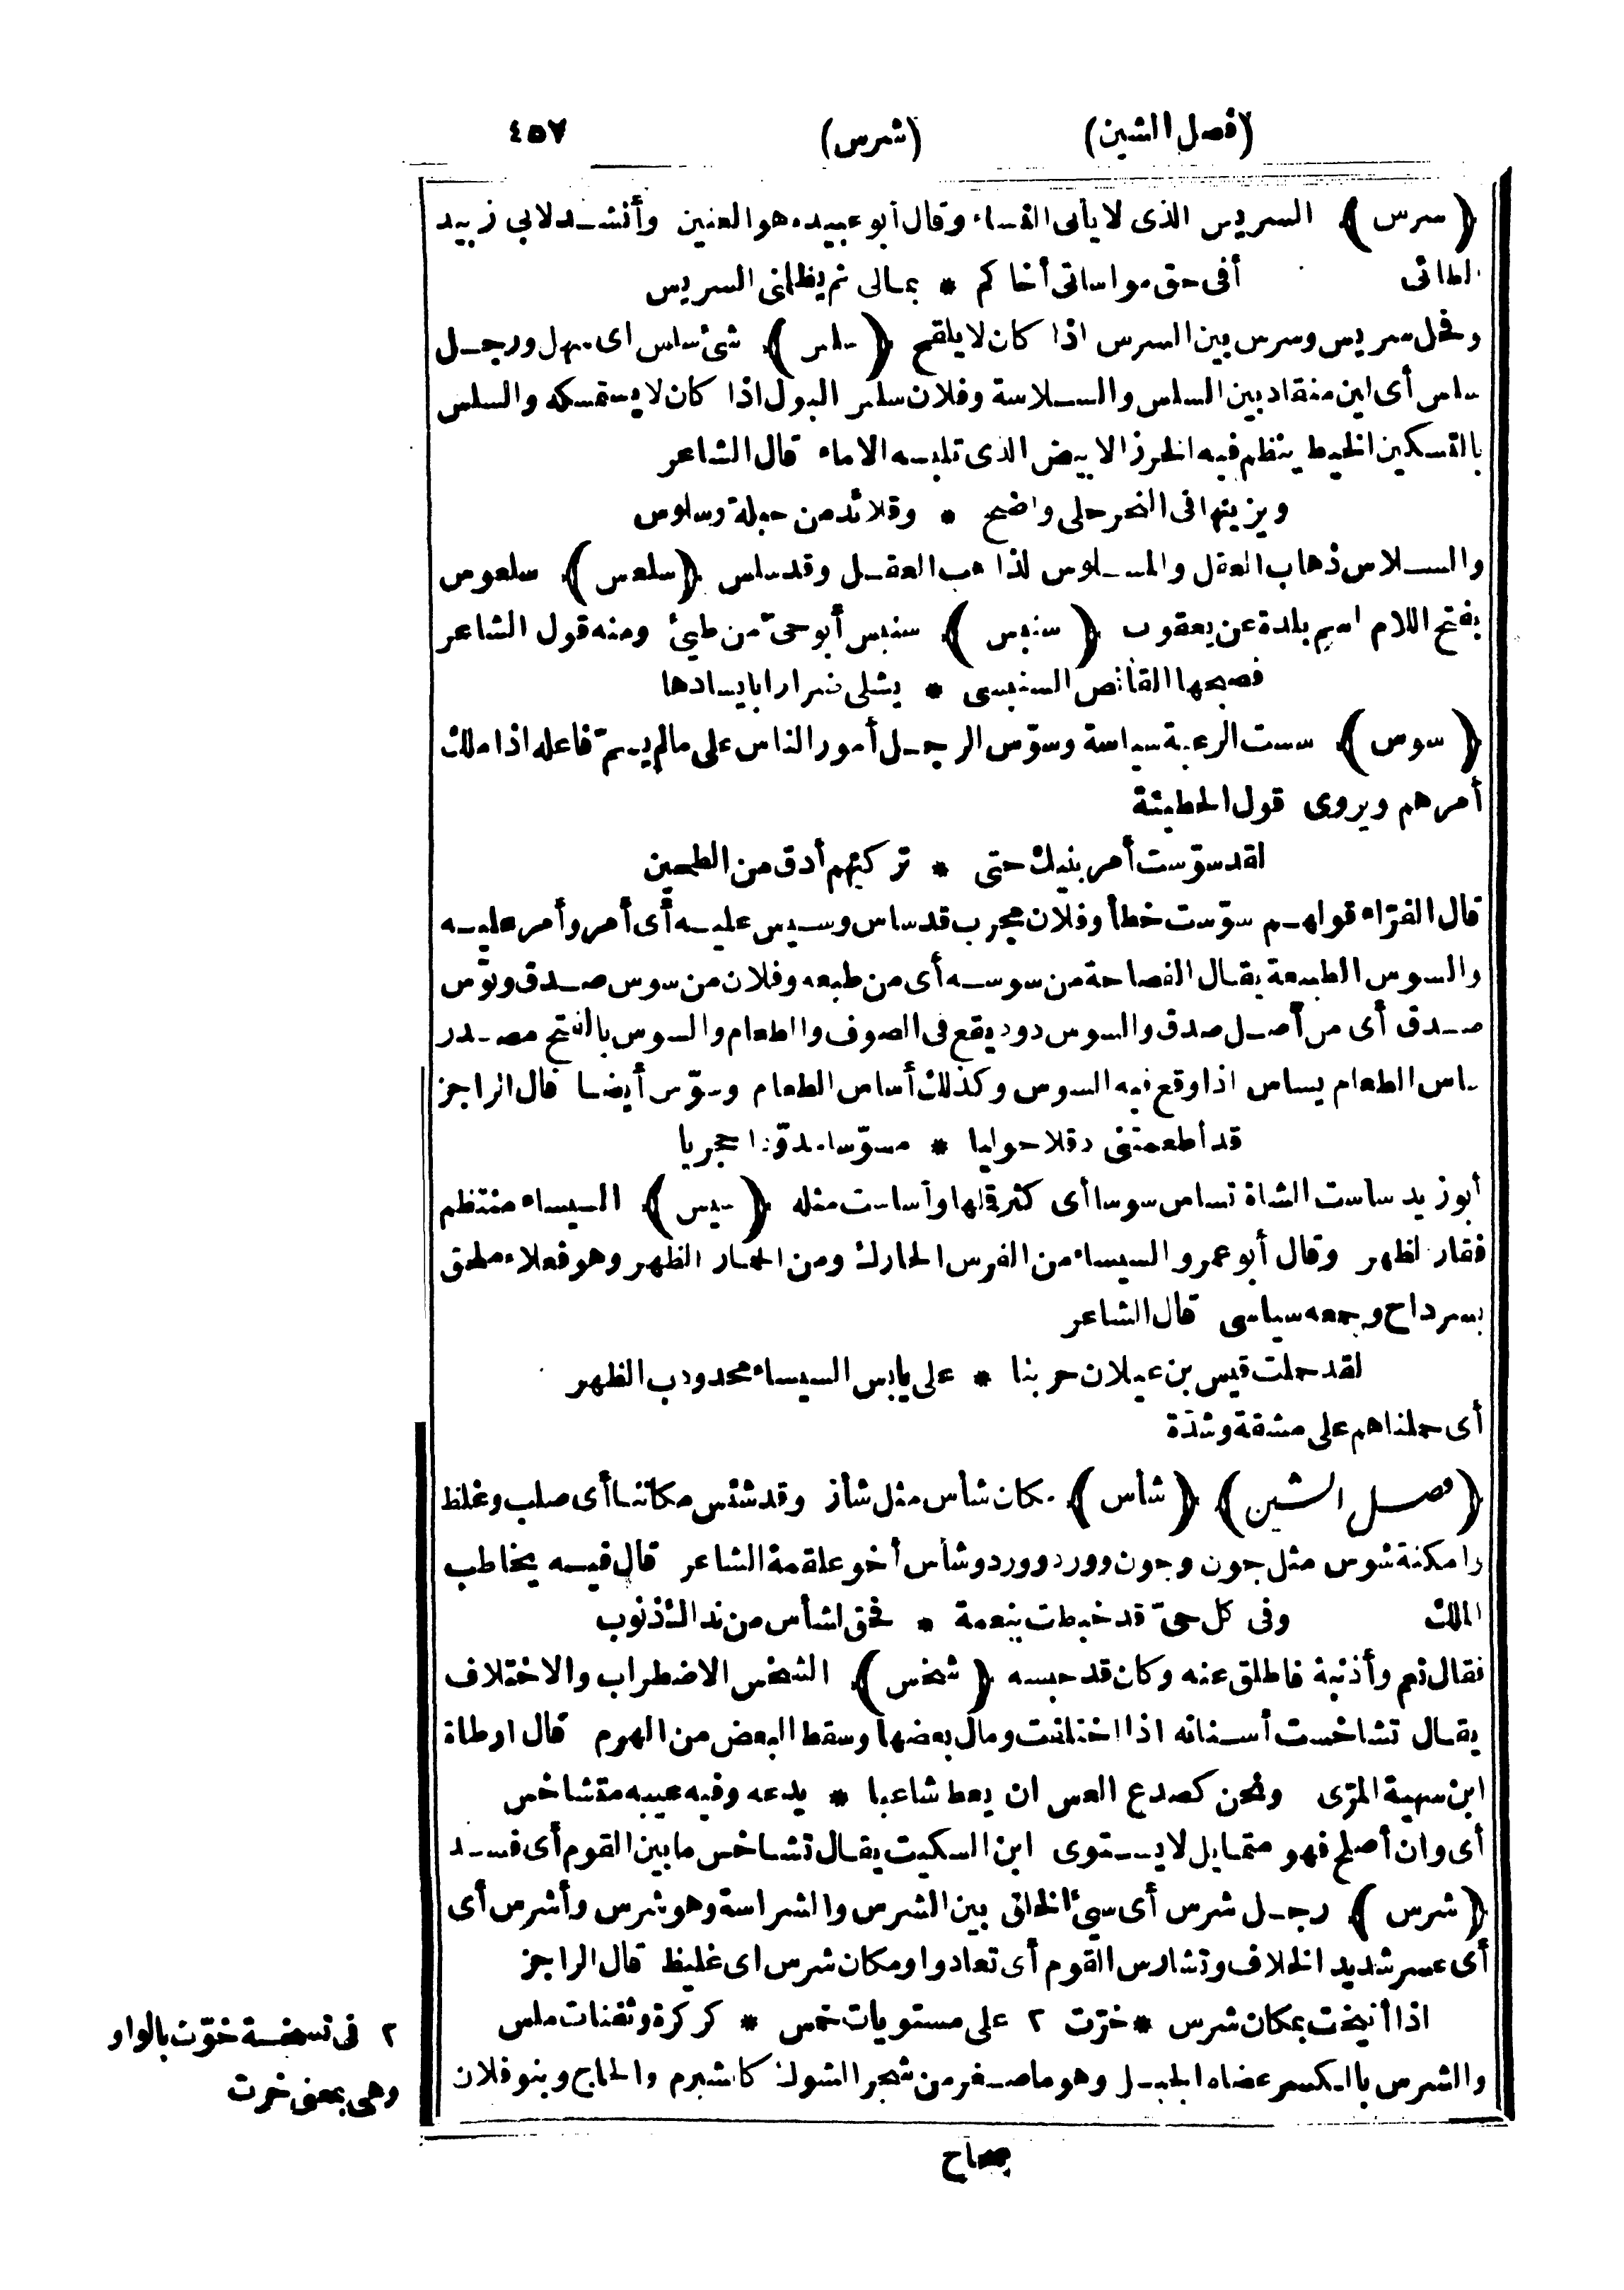 (فصل الشين) (شرس) ٤٥٧
﴿سرس﴾ السريس الذى لا يأتى النساء وقال أبو عبيده هو العنين وأنشد لابى زبيد
الطائى أفى حق مواساتى أخاكم * بمالى ثم يظلمنى السريس
وفحل سريس وسرس بين السرس اذا كان لا يلقح ﴿سلس﴾ شئ سلس اى سهل ورجل
سلس أى لين منقاد بين السلس والسلاسة وفلان سلس البول اذا كان لا يستمسكه والسلس
بالتسكين الخيط ينظم فيه الخرز الابيض الذى تلبسه الاماء قال الشاعر
ويزينها فى النحر حلى واضح * وقلائد من حبلة وسلوس
والسلاس ذهاب العقل والمسلوس الذاهب العقل وقد سلس ﴿سلعس﴾ سلعوس
بفتح اللام اسم بلدة عن يعقوب ﴿سنبس﴾ سنبس أبو حىّ من طيئ ومنه قول الشاعر
فصبحها القانص السنبسى * يشلى ضرارا بايسادها
﴿سوس﴾ سست الرعية سياسة وسوّس الرجل أمور الناس على مالم يسمّ فاعله اذا ملك
أمرهم ويروى قول الحطيئة
لقد سوّست أمر بنيك حتى * تركتهم أدق من الطحين
قال الفرّاء قولهم سوّست خطأ وفلان مجرب قد ساس وسيس عليه أى أمر وأمر عليه
والسوس الطبيعة يقال الفصاحة من سوسه أى من طبعه وفلان من سوس صدق وتوس
صدق أى من أصل صدق والسوس دود يقع فى الصوف والطعام والسوس بالفتح مصدر
ساس الطعام يساس اذا وقع فيه السوس وكذلك أساس الطعام وسوّس أيضا قال الراجز
قد أطعمتنى دقلا حوليا * مسوّسا مدوّدا حجريا
أبو زيد ساست الشاة تساس سوسا أى كثر قملها وأساست مثله ﴿سيس﴾ السيساء منتظم
فقار الظهر وقال أبو عمرو السيساء من الفرس الحارك ومن الحمار الظهر وهو فعلاء ملحق
بسرداح وجمعه سياسى قال الشاعر
لقد حملت قيس بن عيلان حربنا * على يابس السيساء محدودب الظهر
أى حملناهم على مشقة وشدّة
﴿فصل الشين﴾ ﴿شأس﴾ مكان شأس مثل شأز وقد شئس مكاننا أى صلب وغلظ
وامكنة شوس مثل جون وجون وورد وورد وشأس أخو علقمة الشاعر قال فيه يخاطب
الملك وفى كل حىّ قد خبطت بنعمة * فحق لشأس من نداك ذنوب
فقال نعم وأذنبة فاطلق عنه وكان قد حبسه ﴿شخس﴾ الشخس الاضطراب والاختلاف
يقال تشاخست أسنانه اذا اختلفت ومال بعضها وسقط البعض من الهرم قال ارطاة
ابن سهية المرّى ونحن كصدع العس ان يعط شاعبا * يدعه وفيه عيبه متشاخس
أى وان أصلح فهو متمايل لا يستوى ابن السكيت يقال تشاخس ما بين القوم أى فسد
﴿شرس﴾ رجل شرس أى سيئ الخلق بين الشرس والشراسة وهو شرس وأشرس أى
أى عسر شديد الخلاف وتشارس القوم أى تعادوا ومكان شرس اى غليظ قال الراجز
اذا أنيخت بمكان شرس * خرّت ٢ على مستويات خمس * كركرة وثفنات ملس
والشرس بالكسر عضاه الجبل وهو ما صغر من شجر الشوك كالشبرم والحاج وبنو فلان
٢ فى نسخة خوّت بالواو
وهى بمعنى خرت
صحاح